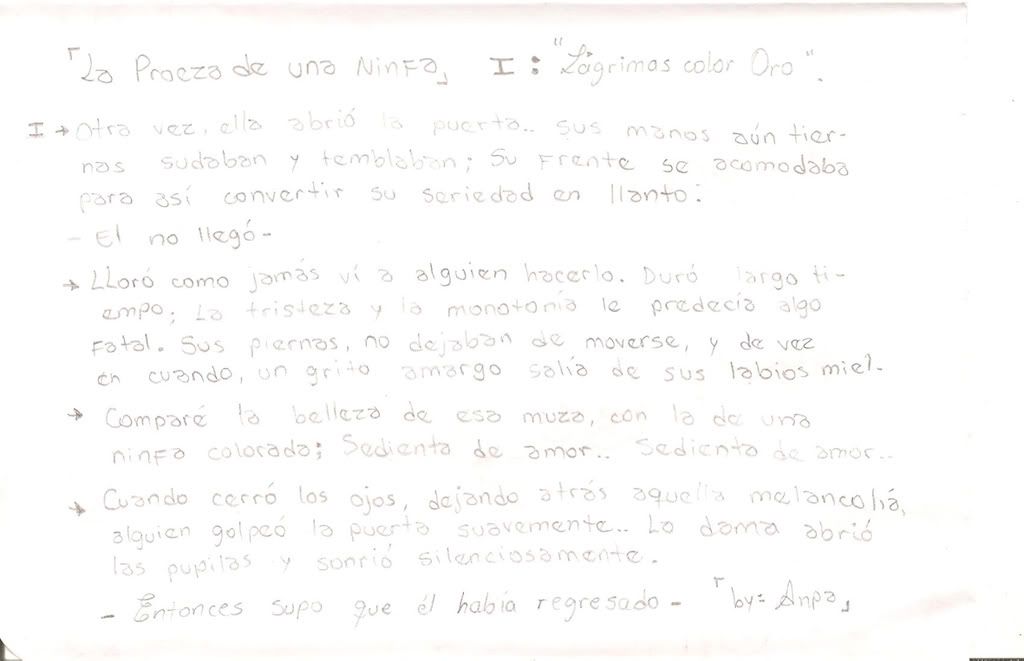 「La Proeza de una Ninfa」 I : "Lágrimas color Oro".
I → Otra vez, ella abrió la puerta.. sus manos aún tier-
nas sudaban y temblaban; Su Frente se acomodaba
para así convertir su seriedad en llanto:
- El no llegó -
→ LLoró como jamás ví a alguien hacerlo. Duró largo ti-
empo; La tristeza y la monotonía le predecía algo
Fatal. Sus piernas, no dejaban de moverse, y de vez
en cuando, un grito amargo salía de sus labios miel.
→ Comparé la belleza de esa muza, con la de una
ninfa colorada; Sedienta de amor.. Sedienta de amor..
→ Cuando cerró los ojos, dejando atrás aquella melancoliá,
alguien golpeó la puerta suavemente.. La dama abrió
las pupilas y sonrió silenciosamente.
- Entonces supo que él había regresado - 「by= Anpa」